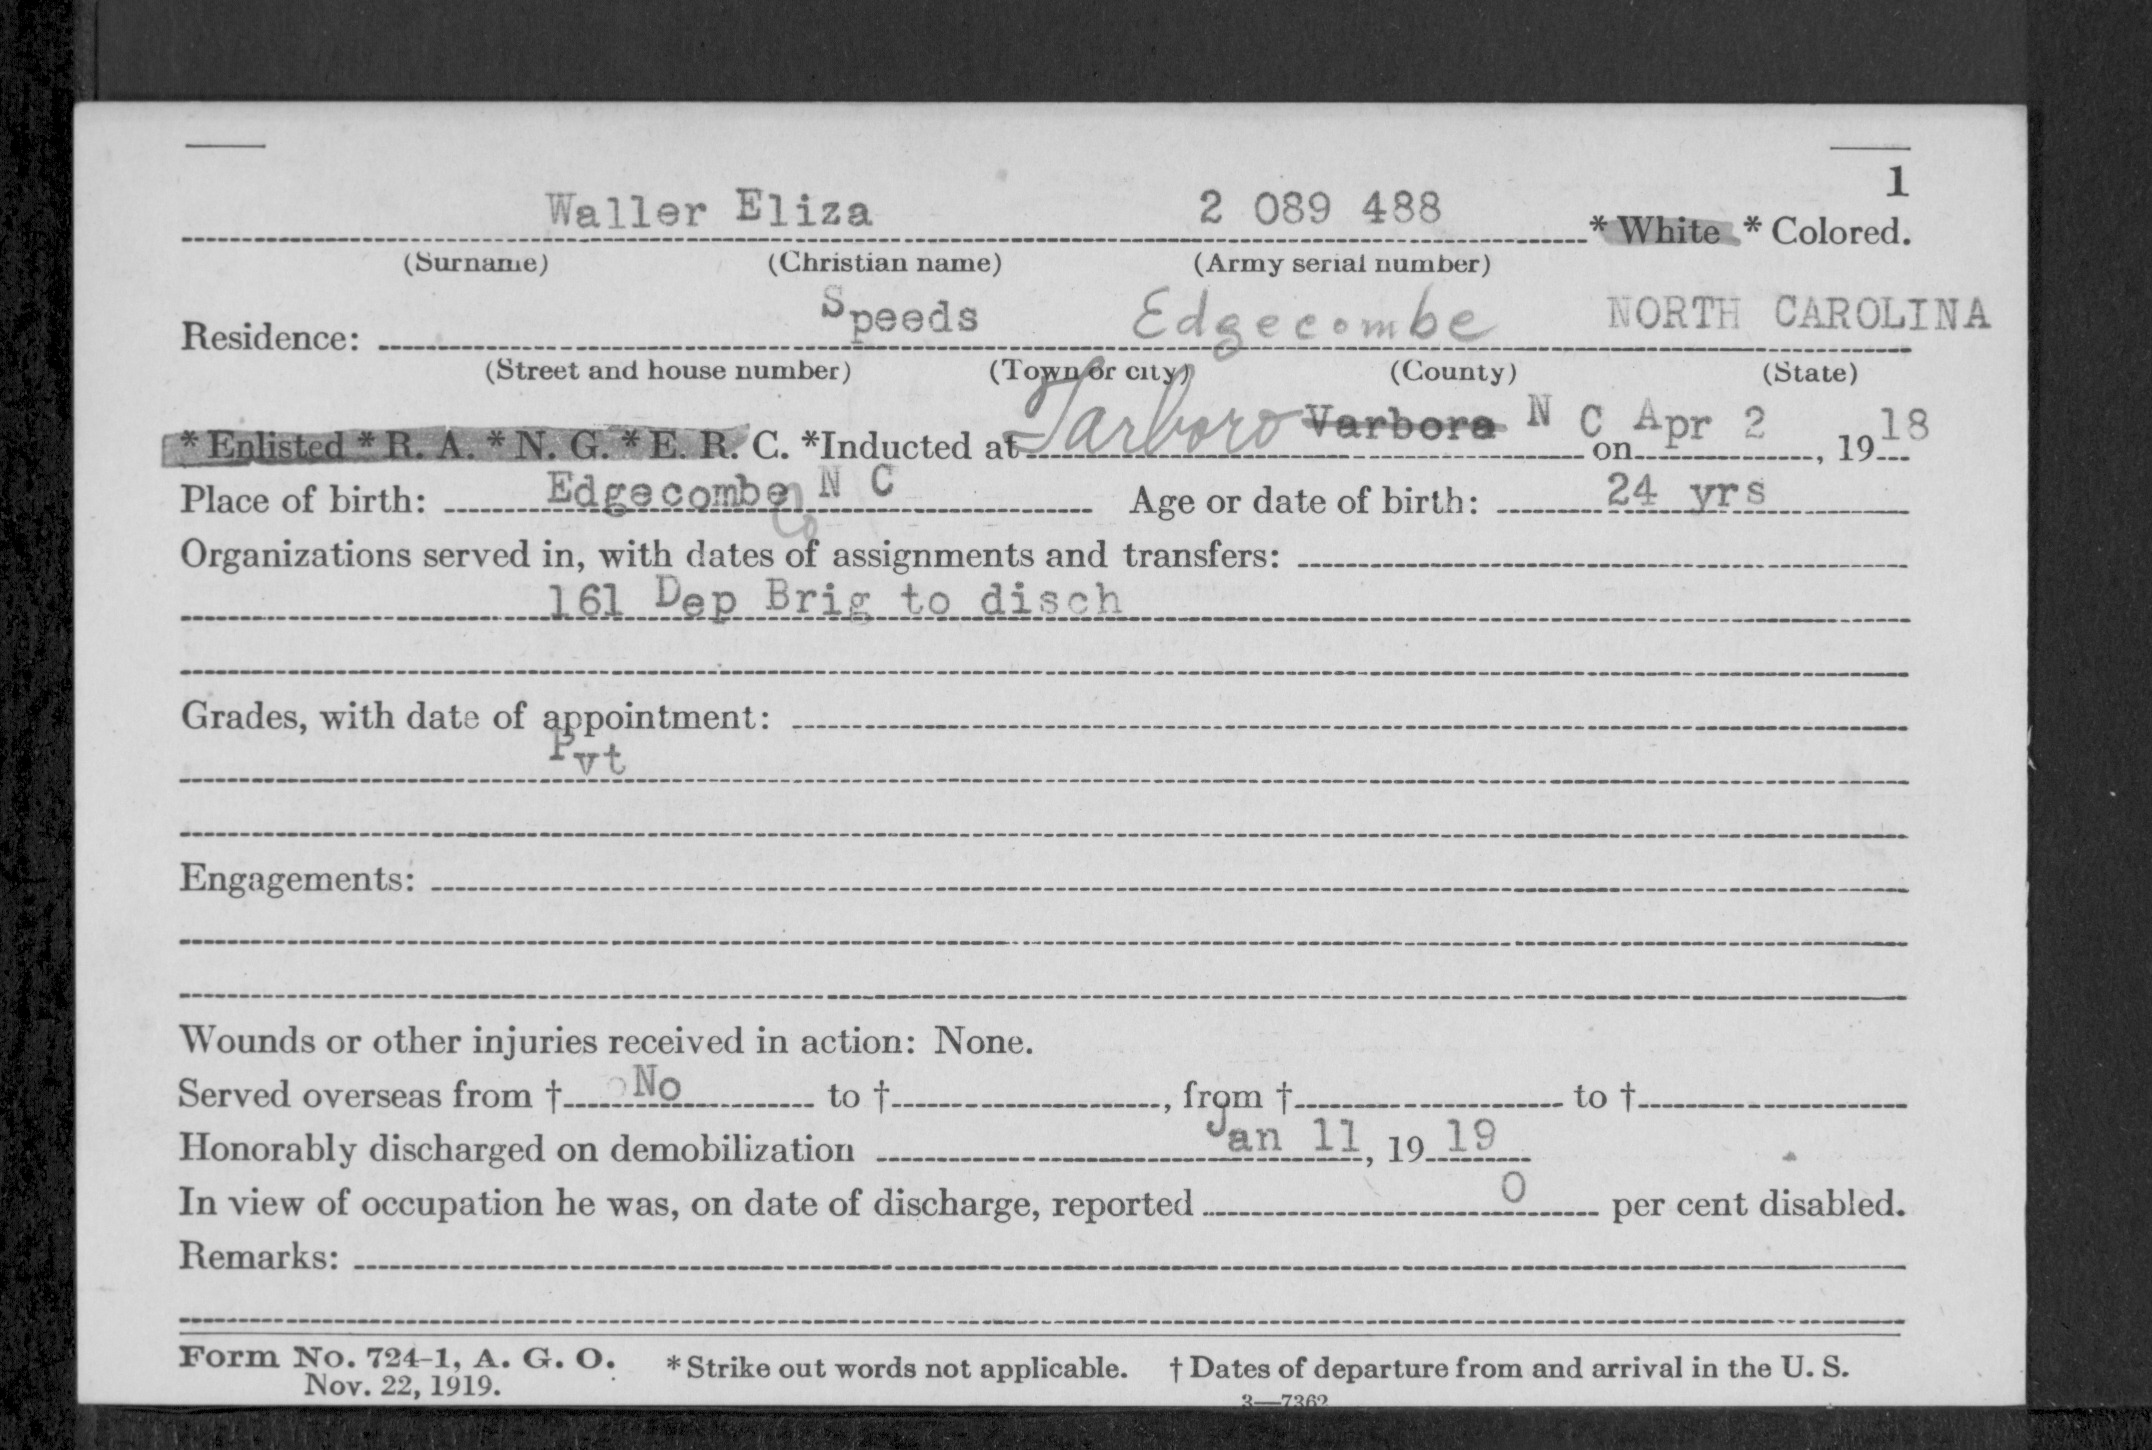 1
Waller Eliza 2 089 488 * White * Colored.
(Surname) (Christian name) (Army serial number)
Residence: Speeds Edgecombe NORTH CAROLINA
(Street and house number) (Town or city) (County) (State)
* Enlisted * R. A. * N. G. * E. R. C. *Inducted at Tarboro Varbora N C on Apr 2, 19 18
Place of birth: Edgecombe Co N C Age or date of birth: 24 yrs
Organizations served in, with dates of assignments and transfers:
161 Dep Brig to disch
Grades, with date of appointment:
Pvt
Engagements:
Wounds or other injuries received in action: None.
Served overseas from † No to †, from † to †
Honorably discharged on demobilization Jan 11, 19 19
In view of occupation he was, on date of discharge, reported 0 per cent disabled.
Remarks:
Form No. 724-1, A. G. O. * Strike out words not applicable. † Dates of departure from and arrival in the U. S.
Nov. 22, 1919.
3—7362